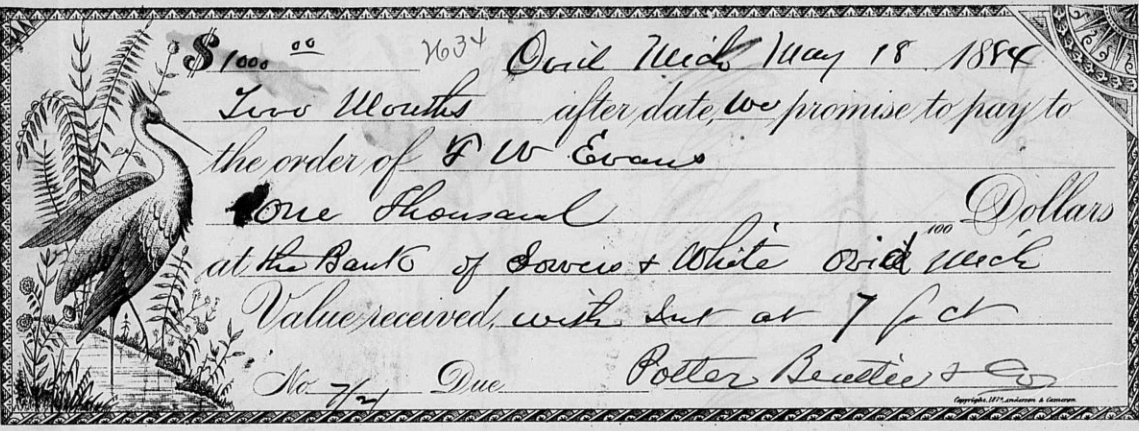 $1000 00 7634 Ovid Mich May 18 1884
Two Months after date, we promise to pay to
the order of F W Evans
One Thousand Dollars
100
at the Bank of Sowers & White Ovid Mich
Value received, with Int at 7 p ct
No 7/21 Due Potter Beattie & Co
Copyright, 1879, Anderson & Cameron